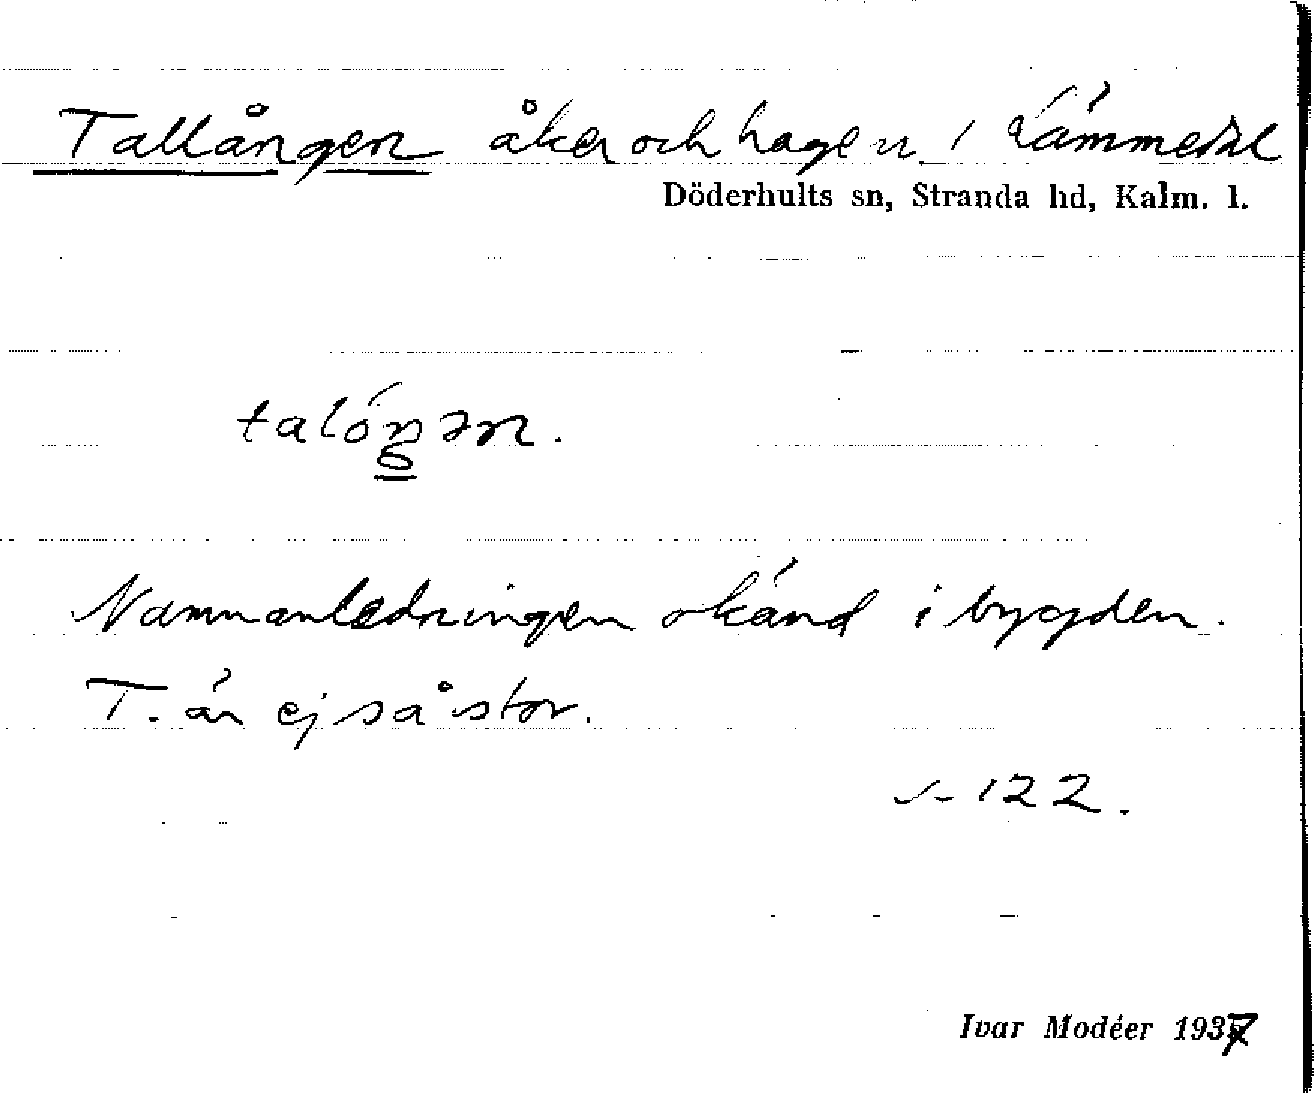 Tallången åker och hage i Lämmedal
Döderhults sn, Stranda hd, Kalm. l.
talóŋən.
Namnanledningen okänd i bygden.
T. är ej så stor.
s. 122.
Ivar Modéer 1937